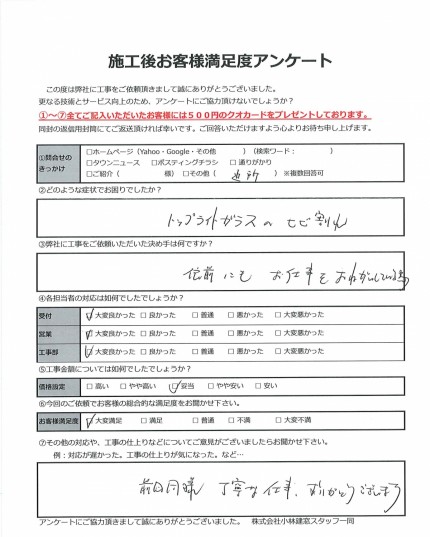 施工後お客様満足度アンケート
この度は弊社に工事をご依頼頂きまして誠にありがとうございました。
更なる技術とサービス向上のため、アンケートにご協力頂けないでしょうか?
①～⑦全てご記入いただいたお客様には500円のクオカードをプレゼントしております。
同封の返信用封筒にてご返送頂ければ幸いです。ご回答いただけますよう心よりお待ち申し上げます。
①問合せのきっかけ
□ホームページ（Yahoo・Google・その他 ）（検索ワード： ）
□タウンニュース □ポスティングチラシ □通りがかり
□ご紹介（ 様）□その他（ 近所 ）※複数回答可
②どのような症状でお困りでしたか？
トップライトガラスのヒビ割れ
③弊社に工事をご依頼いただいた決め手は何ですか？
以前にもお仕事をおねがいしている為
④各担当者の対応は如何でしたでしょうか？
受付 ☑大変良かった □良かった □普通 □悪かった □大変悪かった
営業 ☑大変良かった □良かった □普通 □悪かった □大変悪かった
工事部 ☑大変良かった □良かった □普通 □悪かった □大変悪かった
⑤工事金額については如何でしたでしょうか？
価格設定 □高い □やや高い ☑妥当 □やや安い □安い
⑥今回のご依頼でお客様の総合的な満足度をお聞かせ下さい。
お客様満足度 ☑大変満足 □満足 □普通 □不満 □大変不満
⑦その他の対応や、工事の仕上りなどについてご意見がございましたらお聞かせ下さい。
例：対応が遅かった。工事の仕上りが気になった。など…
前回同様 丁寧な仕事、ありがとうございます
アンケートにご協力頂きまして誠にありがとうございました。 株式会社小林建窓スタッフ一同